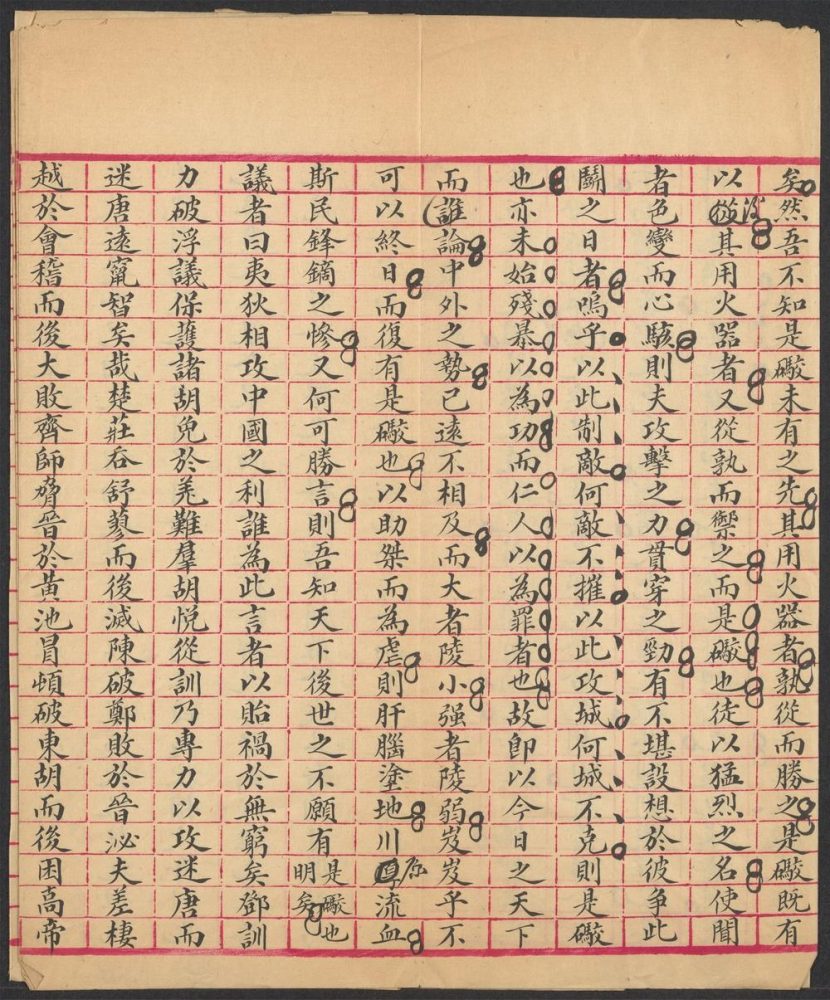 矣然吾不知是礮未有之先其用火器者孰從而勝之是礮既有
以後其用火器者又從孰而禦之而是礮也徒以猛烈之名使聞
者色變而心駭則夫攻擊之力貫穿之勁有不堪設想於彼爭此
鬭之日者嗚乎以此制敵何敵不摧以此攻城何城不克則是礮
也亦未始殘暴以為功而仁人以為罪者也故即以今日之天下
而誰論中外之勢已遠不相及而大者陵小强者陵弱岌岌乎不
可以終日而復有是礮也以助桀而為虐則肝腦塗地川原流血
斯民鋒鏑之慘又何可勝言則吾知天下後世之不願有是礮也明矣
議者曰夷狄相攻中國之利誰為此言者以貽禍於無窮矣鄧訓
力破浮議保護諸胡免於羌難羣胡悅從訓乃專力以攻迷唐而
迷唐遠竄智矣哉楚莊吞舒蓼而後滅陳破鄭敗於晉泌夫差棲
越於會稽而後大敗齊師脅晉於黃池冒頓破東胡而後困高帝